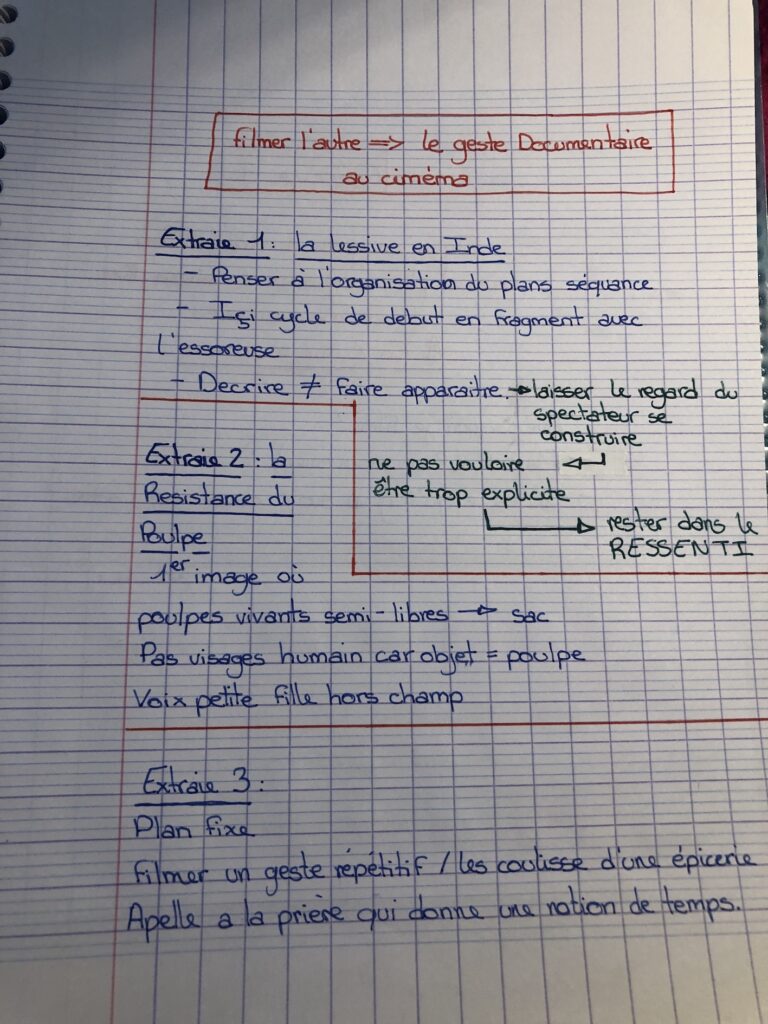 filmer l'autre => le geste Documentaire
au ciméma
Extraie 1 : la lessive en Inde
- Penser à l'organisation du plans séquance
- Içi cycle de debut en fragment avec
l'essoreuse
- Decrire ≠ faire apparaitre. → laisser le regard du
spectateur se
construire
ne pas vouloire ←
être trop explicite
→ rester dans le
RESSENTI
Extraie 2 : la
Resistance du
Poulpe
1er image où
poulpes vivants semi-libres → sac
Pas visages humain car objet = poulpe
Voix petite fille hors champ
Extraie 3 :
Plan fixe
Filmer un geste répétitif / les coulisse d'une épicerie
Apelle a la prière qui donne une notion de temps.